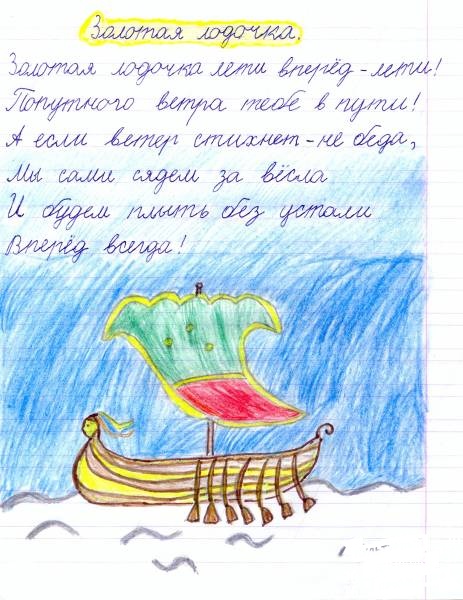 Золотая лодочка.
Золотая лодочка лети вперёд - лети!
Попутного ветра тебе в пути!
А если ветер стихнет - не беда,
Мы сами сядем за вёсла
И будем плыть без устали
Вперёд всегда!